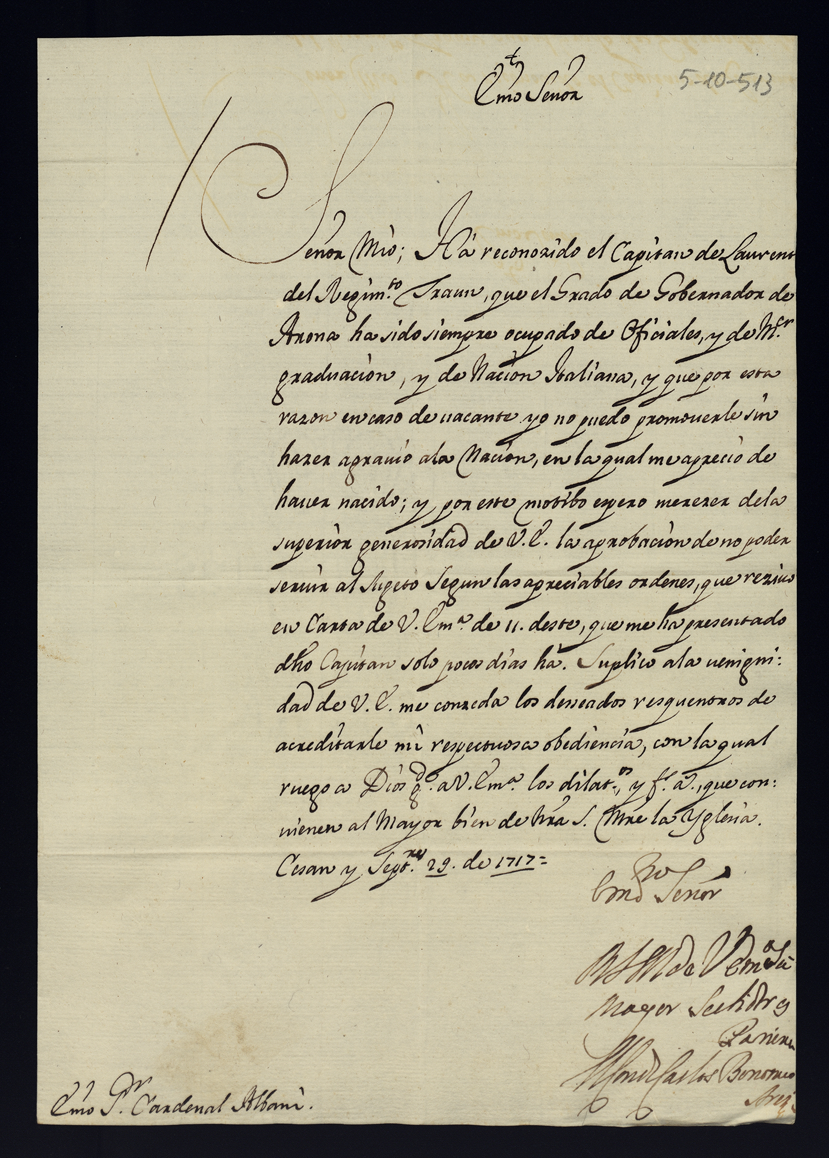 Emo Señor
5-10-513
Señor Mio; Ha reconozido el Capitan de Laurent
del Regim.to Traun, que el Grado de Gobernador de
Arona ha sido siempre ocupado de Oficiales, y de M.r
graduacion, y de Nacion Italiana, y que por esta
razon en caso de uacante yo no puedo promouerle sin
hazer agrauio ala Nacion, en la qual me aprecio de
hauer nacido; y por este motibo espero merezer dela
superior generosidad de V.E. la aprobacion de no poder
seruir al Sugeto Segun las apreciables ordenes, que reziuo
en Carta de V. Em.a de 11. deste, que me ha presentado
dho Capitan solo pocos dias ha. Suplico ala uenigni:
dad de V.E. me conzeda los desseados resquentros de
acreditarle mi respectuosa obediencia, con la qual
ruego a Dios g.e a V. Em.a los dilat.os, y f.s a.s, que con:
uienen al Mayor bien de Nra S. Mre la Yglesia.
Cesan y Sept.re 29. de 1717=
Emo Señor
BLM de V Em.a Su
Mayor Seruidor y
Pariente
El Conde Carlos Borromeo
Ares
Emo S.or Cardenal Albani.